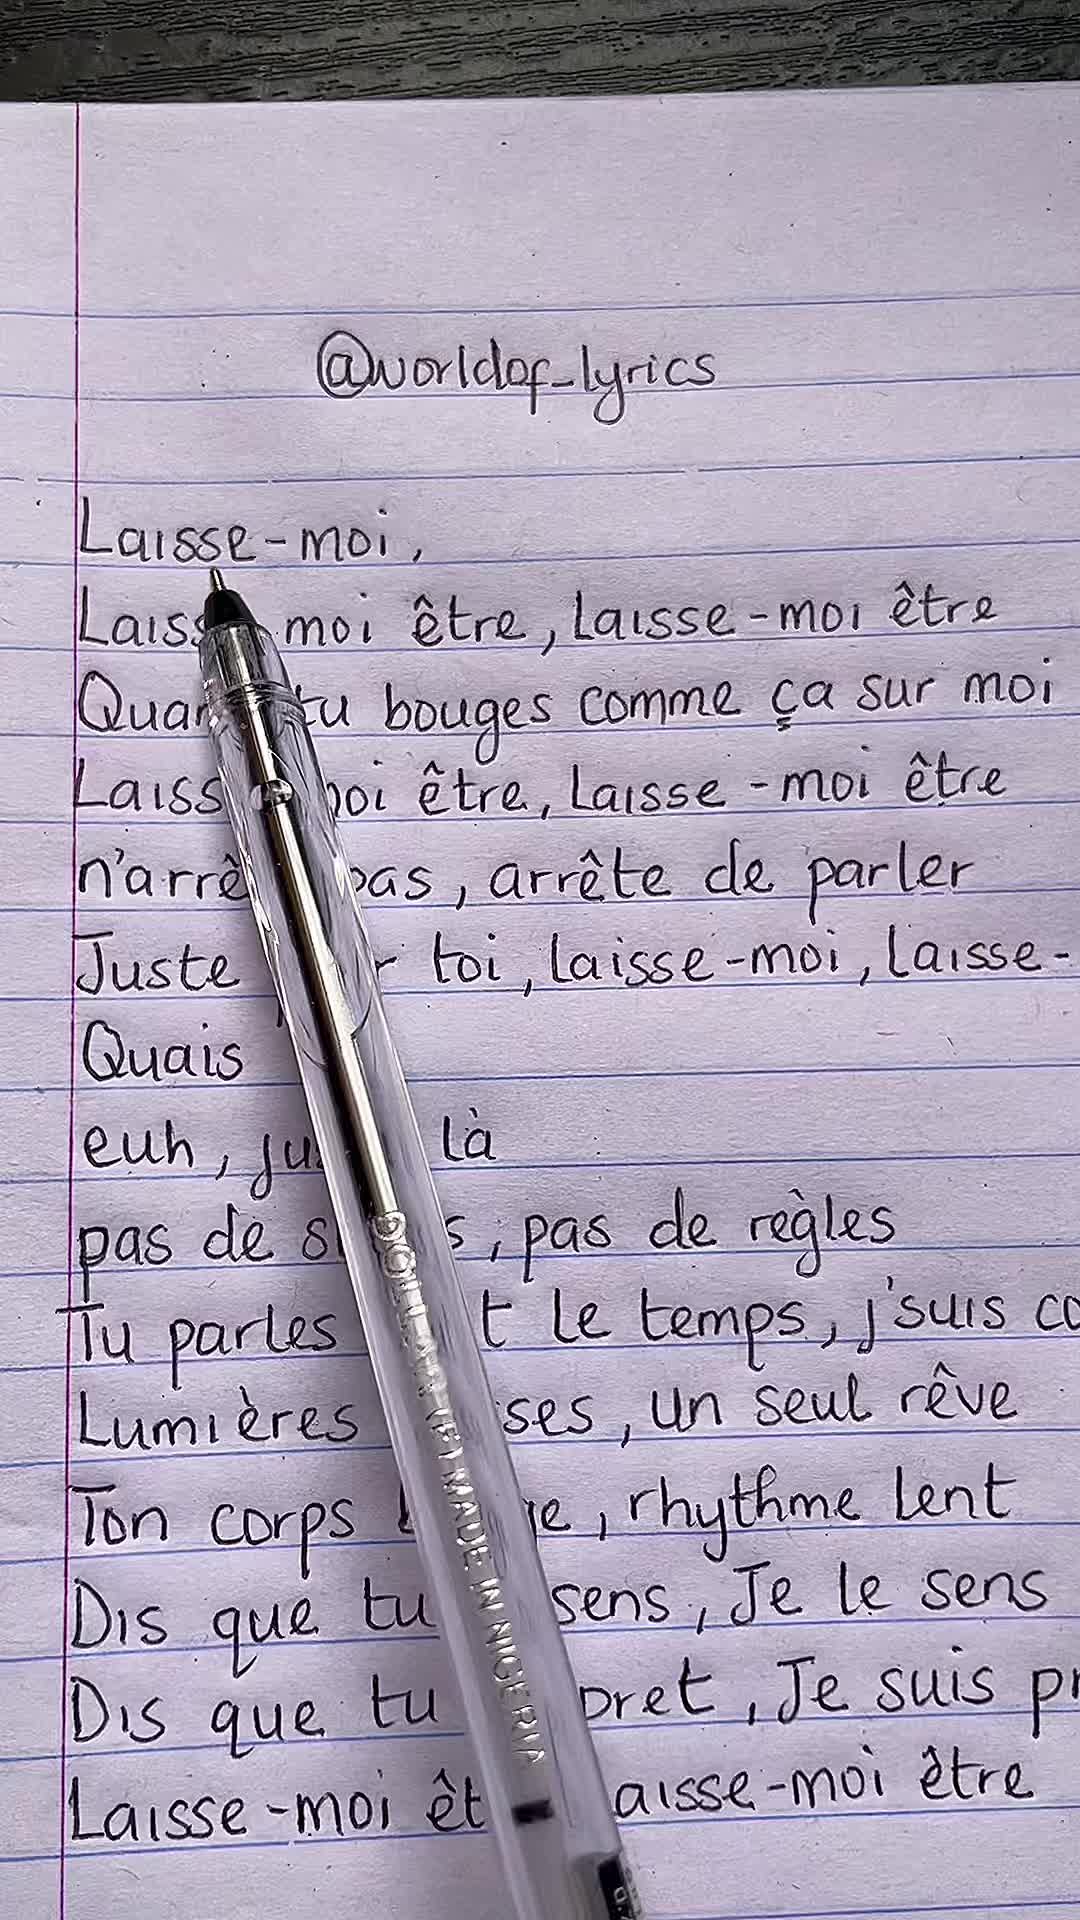 @worldof_lyrics
Laisse-moi,
Laisse moi être, Laisse-moi être
Quand tu bouges comme ça sur moi
Laisse moi être, Laisse-moi être
n'arrête pas, arrête de parler
Juste toi, laisse-moi, Laisse-
Quais
euh, là
pas de, pas de règles
Tu parles le temps, j'suis
Lumières, un seul rêve
Ton corps, rhythme lent
Dis que tu sens, Je le sens
Dis que tu pret, Je suis
Laisse-moi être Laisse-moi être
DOLLAR (F) MADE IN NIGERIA